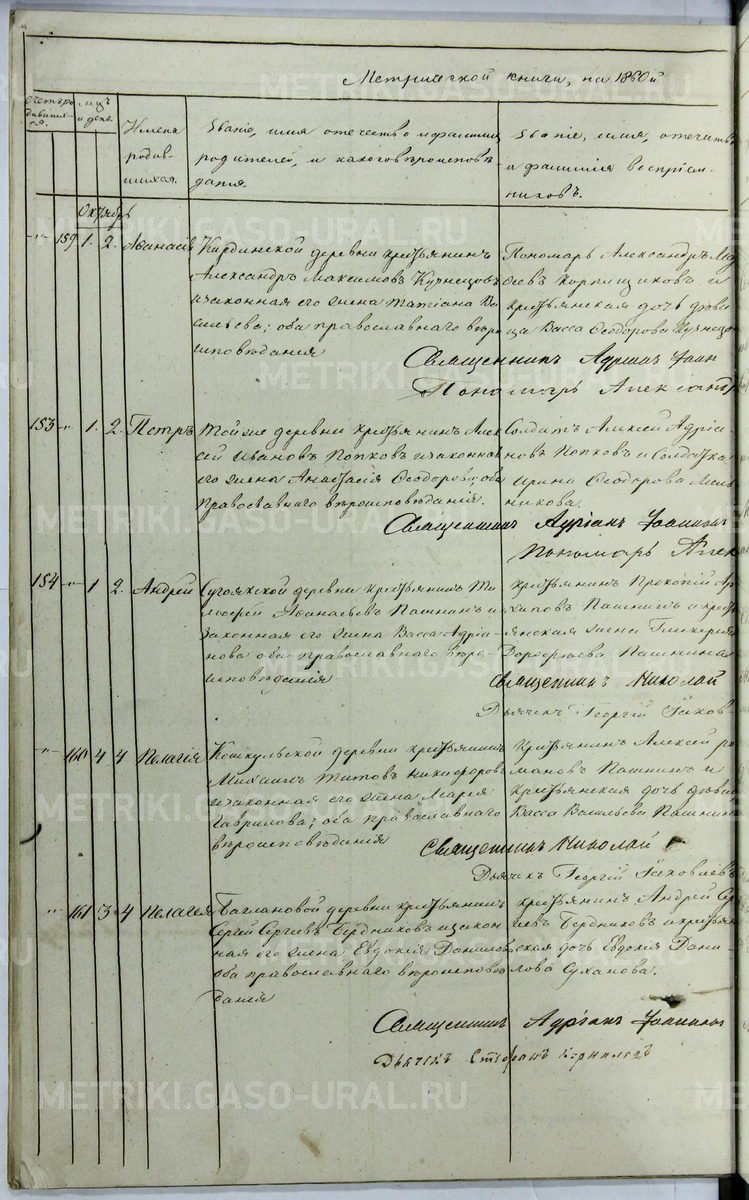 Метрической книги, на 1860й
Счетъ ро
дивших
ся.
мцъ
и день.
Имена
родив-
шихся.
Званіе, имя отечество и фамилія
родителей, и какого вѣроисповѣ
данія.
Званіе, имя, отечество
и фамилія воспріем-
никовъ.
Октябрь
159 1. 2. Афанасій
Кирдинской деревни крестьянинъ
Александръ Максимовъ Кузнецовъ
и законная его жена Татіана Ва
сильева; оба православнаго вѣро
исповѣданія
Пономарь Александръ
и
крестьянская дочь дѣви
ца Васса Ѳеодорова Кузнецо
Священникъ Адріанъ Іоан
Пономарь Александръ
153 1. 2. Петръ
Той же деревни крестьянинъ Алек
сѣй Ивановъ Попковъ и законная
его жена Анастасія Ѳеодорова; оба
Православнаго вѣроисповѣданія.
Солдатъ Алексѣй Адріа-
новъ Попковъ и Солдатка
Ирина Ѳеодорова Мель
никова.
Священникъ Адріанъ Іоанновъ
Пономарь Алек
154 1 2. Андрей
Сугоякской деревни крестьянинъ Ти
моѳей Аѳанасьевъ Пашнинъ и
законная его жена Васса Адріа-
нова оба православнаго вѣро-
исповѣданія
Крестьянинъ Прокопій Ар
хиповъ Пашнинъ и кресть
янская жена Гликерія
Дороѳеева Пашнина
Священникъ Николай
Дьячекъ Георгій Яков-
160 4 4 Пелагія
Кошкульской деревни крестьянинъ
Михаилъ Титовъ Никифоровъ
и законная его жена Марія
Гаврилова; оба православнаго
вѣроисповѣданія
Крестьянинъ Алексѣй Ро
мановъ Пашнинъ и
крестьянская дочь дѣвица
Васса Васильева Пашнина
Священникъ Николай
Дьячекъ Георгій Яковлевъ
161 3 4 Пелагея
Баглановой деревни крестьянинъ
Сергій Сергіевъ Бердниковъ и закон
ная его жена Евдокія Данилова
оба православнаго вѣроисповѣ
данія
Крестьянинъ Андрей Сер
гіевъ Бердниковъ и крестьян
ская дочь Евдокія Дани-
лова Суханова.
Священникъ Адріанъ Іоанновъ
Дьячекъ Стефанъ Корниловъ
METRIKI.GASO-URAL.RU